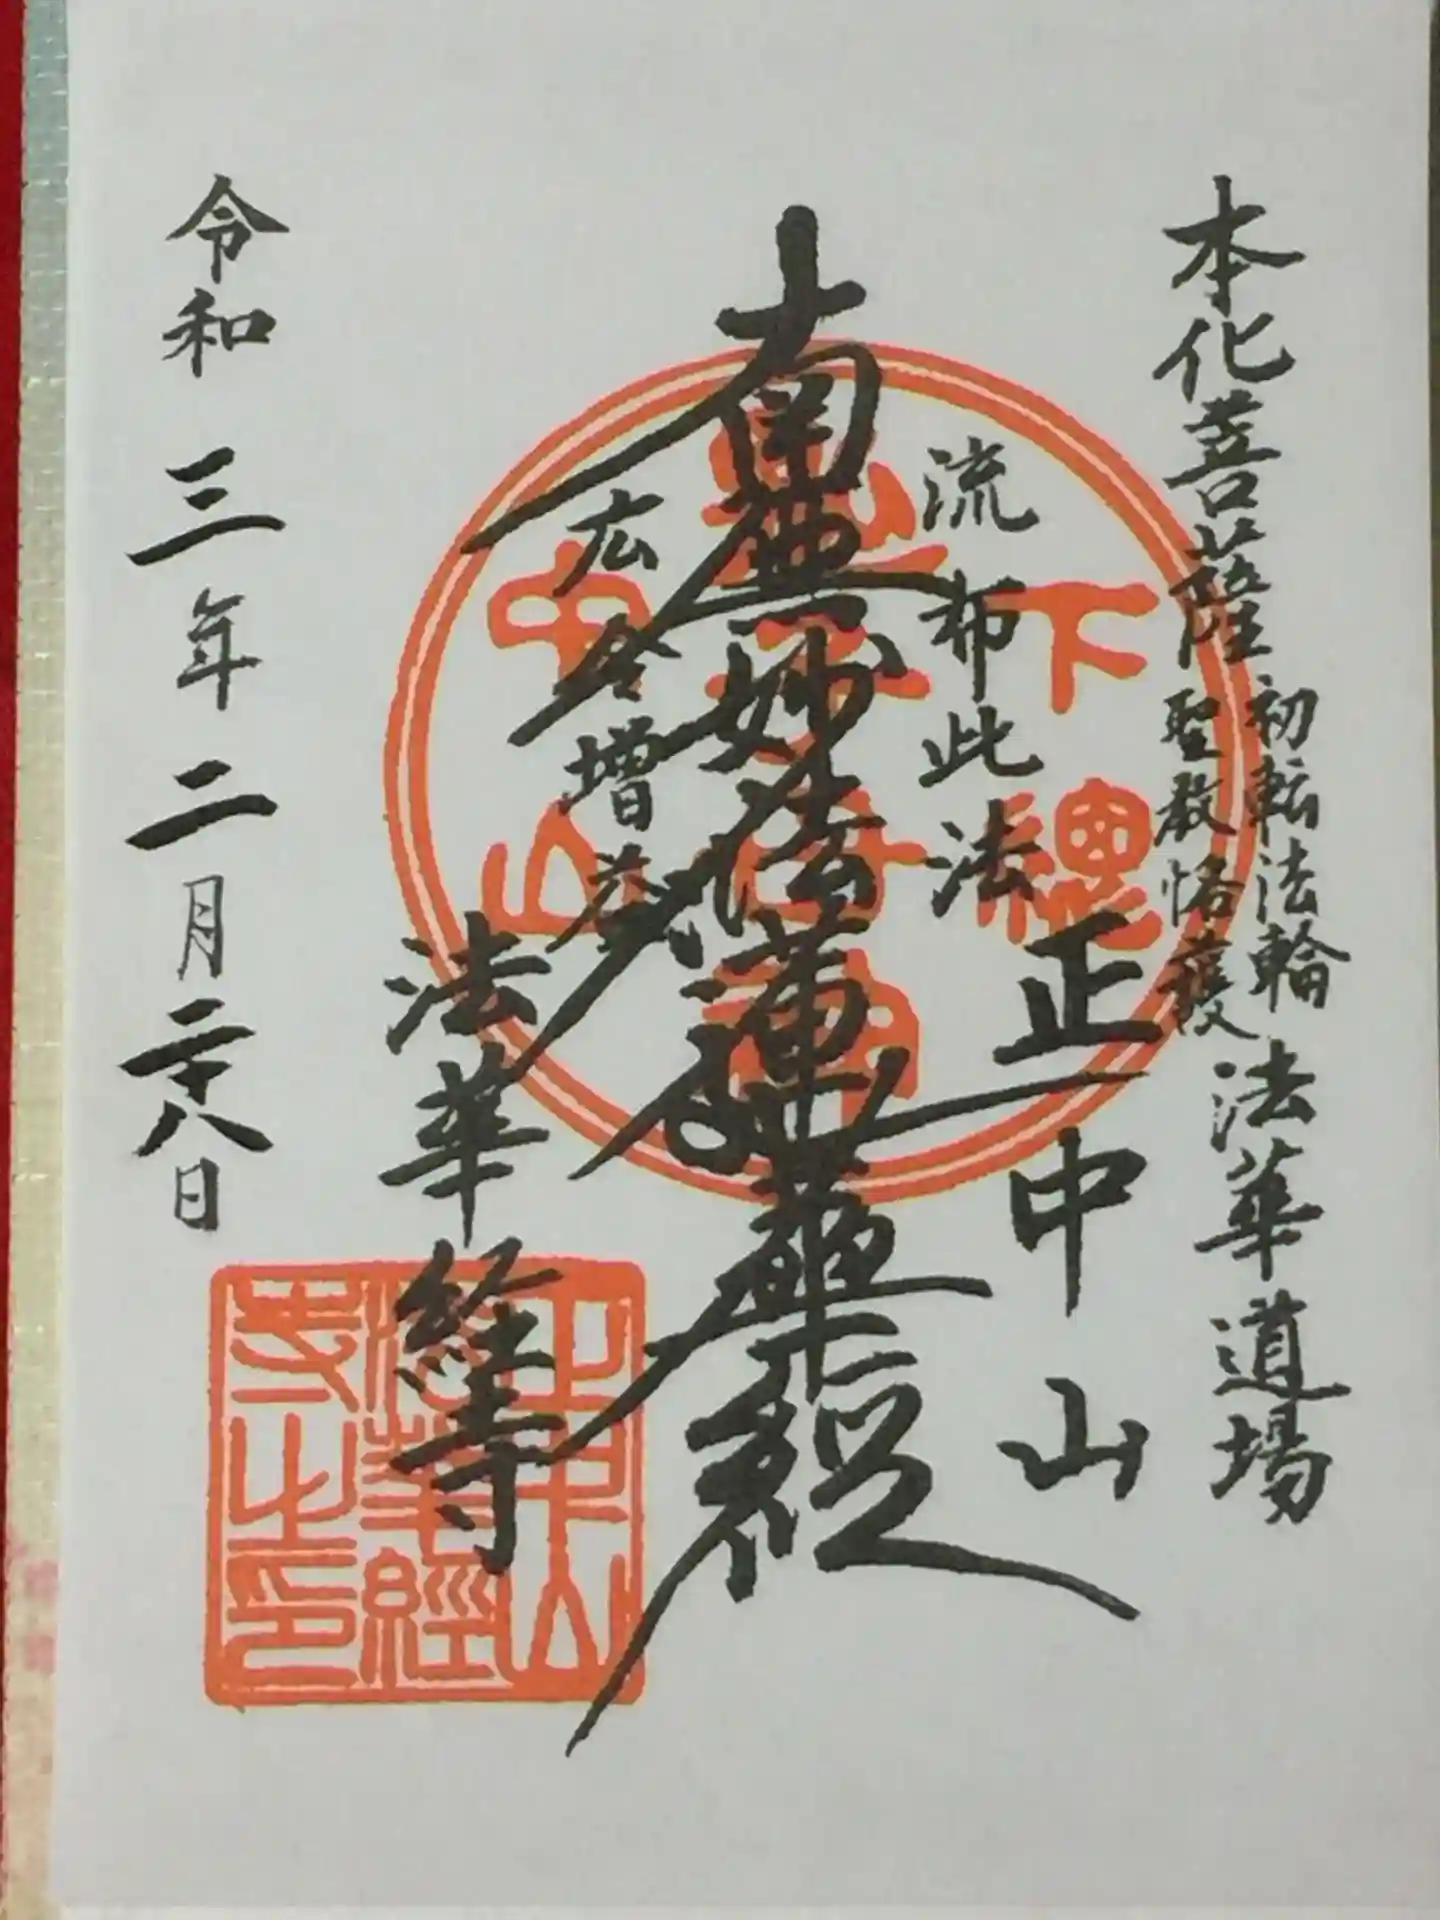 本化菩薩
初転法輪
聖教恪護
法華道場
正中山
流布此法
南無妙法蓮華経
広令増益
法華経寺
令和三年二月二十八日
下總
中山
中山
法華經
寺之印